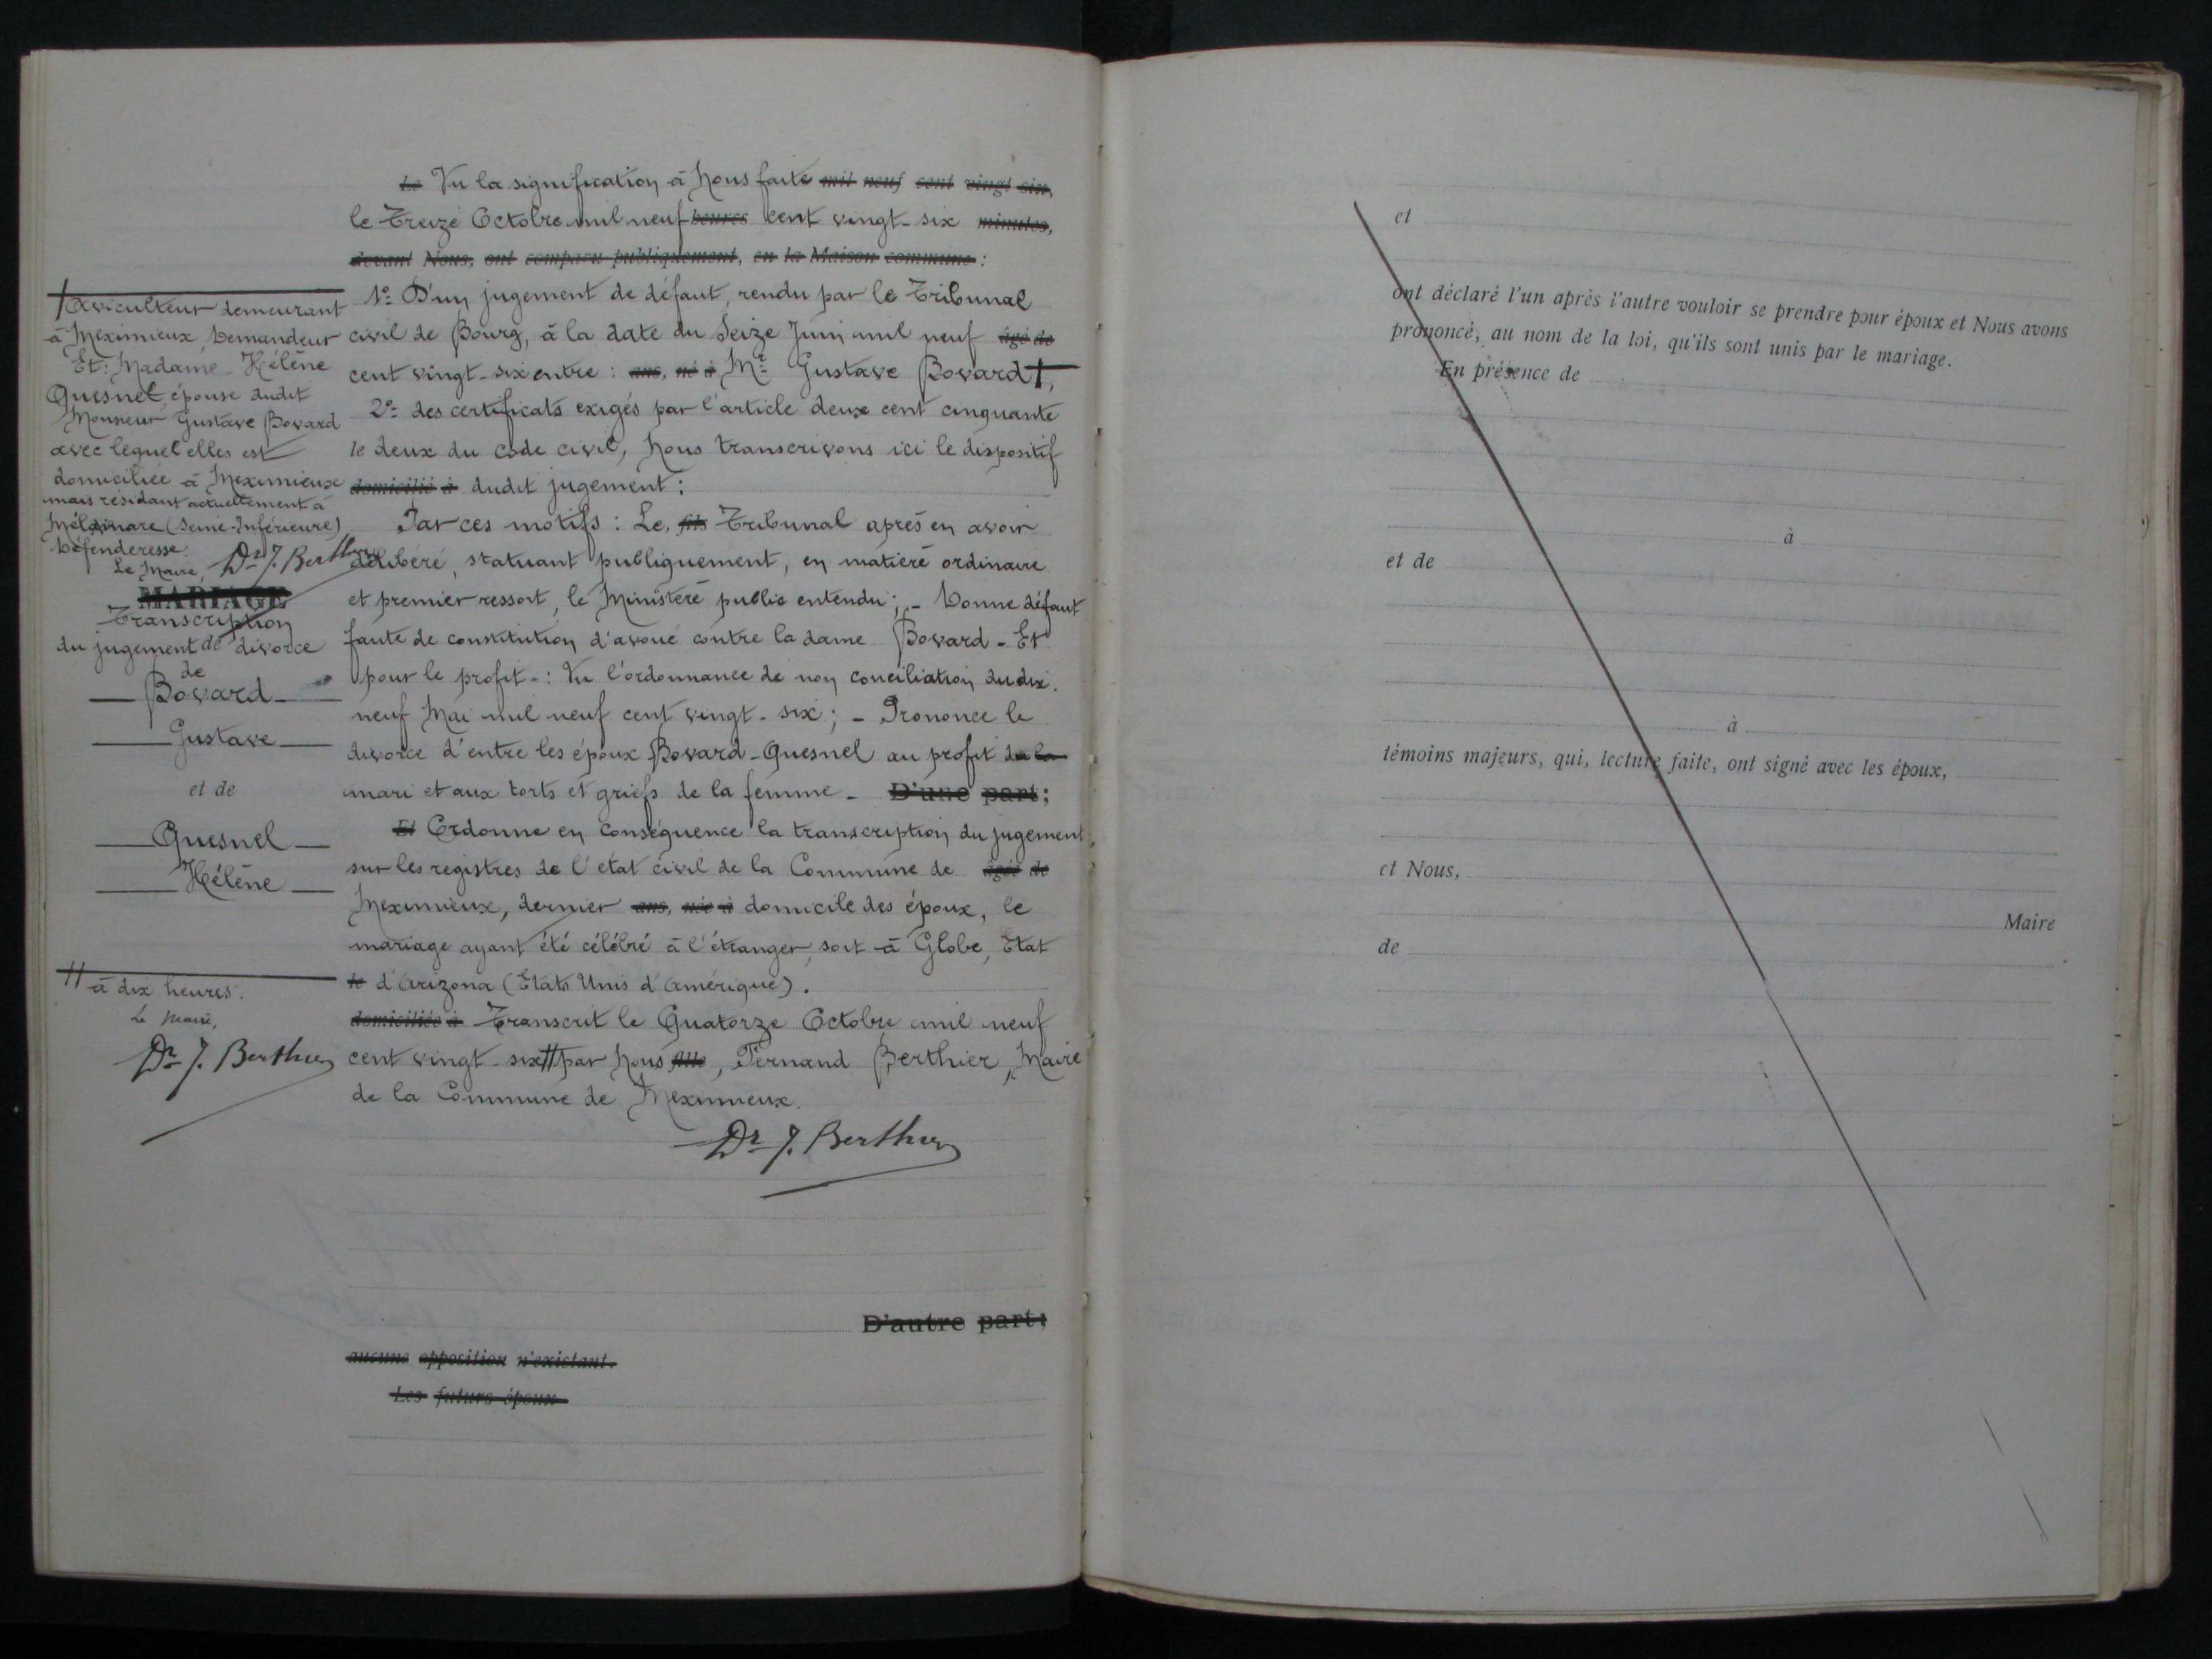 Le Vu la signification à Nous faite mil neuf cent vingt six,
le Treize Octobre mil neuf heures cent vingt-six minutes,
devant Nous, ont comparu publiquement, en la Maison commune :
1º D'un jugement de défaut, rendu par le Tribunal
civil de Bourg, à la date du Seize Juin mil neuf âgé de
cent vingt-six entre : ans, né à Mr Gustave Bovard †,
2º des certificats exigés par l'article deux cent cinquante
le deux du code civil, Nous transcrivons ici le dispositif
domicilié à dudit jugement :
Par ces motifs : Le, fils Tribunal après en avoir
délibéré, statuant publiquement, en matière ordinaire
et premier ressort, le Ministère public entendu ; - Donne défaut
faute de constitution d'avoué contre la dame Bovard - Et
pour le profit - : Vu l'ordonnance de non conciliation du dix.
neuf Mai mil neuf cent vingt-six ; - Prononce le
divorce d'entre les époux Bovard-Quesnel au profit de la
mari et aux torts et griefs de la femme - D'une part ;
Et Ordonne en conséquence la transcription du jugement
sur les registres de l'état civil de la Commune de âgée de
Meximieux, dernier ans, née à domicile des époux, le
mariage ayant été célébré à l'étranger, soit à Globe, Etat
le d'Arizona (Etats Unis d'Amérique).
domiciliée à Transcrit le Quatorze Octobre mil neuf
cent vingt-six †† par Nous fille, Fernand Berthier, Maire
de la Commune de Meximieux.
Dr J. Berthier
D'autre part ;
aucune opposition n'existant.
Les futurs époux
† Aviculteur demeurant
à Meximieux, Demandeur
Et : Madame Hélène
Quesnel épouse dudit
Monsieur Gustave Bovard
avec lequel elles est
domiciliée à Meximieux
mais résidant actuellement à
(Seine-Inférieure)
Défenderesse.
Le Maire, Dr J. Berthier
MARIAGE
Transcription
du jugement de divorce
de
Bovard
Gustave
et de
Quesnel
Hélène
†† à dix heures.
Le Maire,
Dr J. Berthier
et
ont déclaré l'un après l'autre vouloir se prendre pour époux et Nous avons
prononcé, au nom de la loi, qu'ils sont unis par le mariage.
En présence de
à
et de
à
témoins majeurs, qui, lecture faite, ont signé avec les époux,
et Nous,
Maire
de